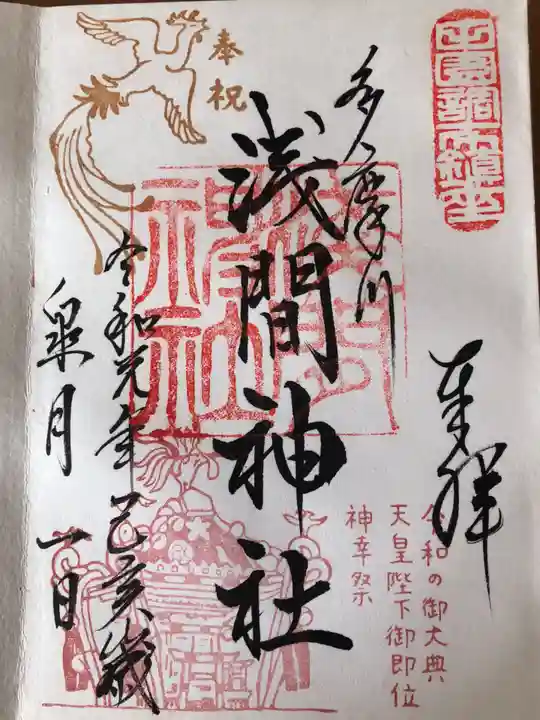 奉拝
令和の御大典
天皇陛下御即位
神幸祭
多摩川
浅間神社
奉祝
令和元年己亥歳
皐月一日